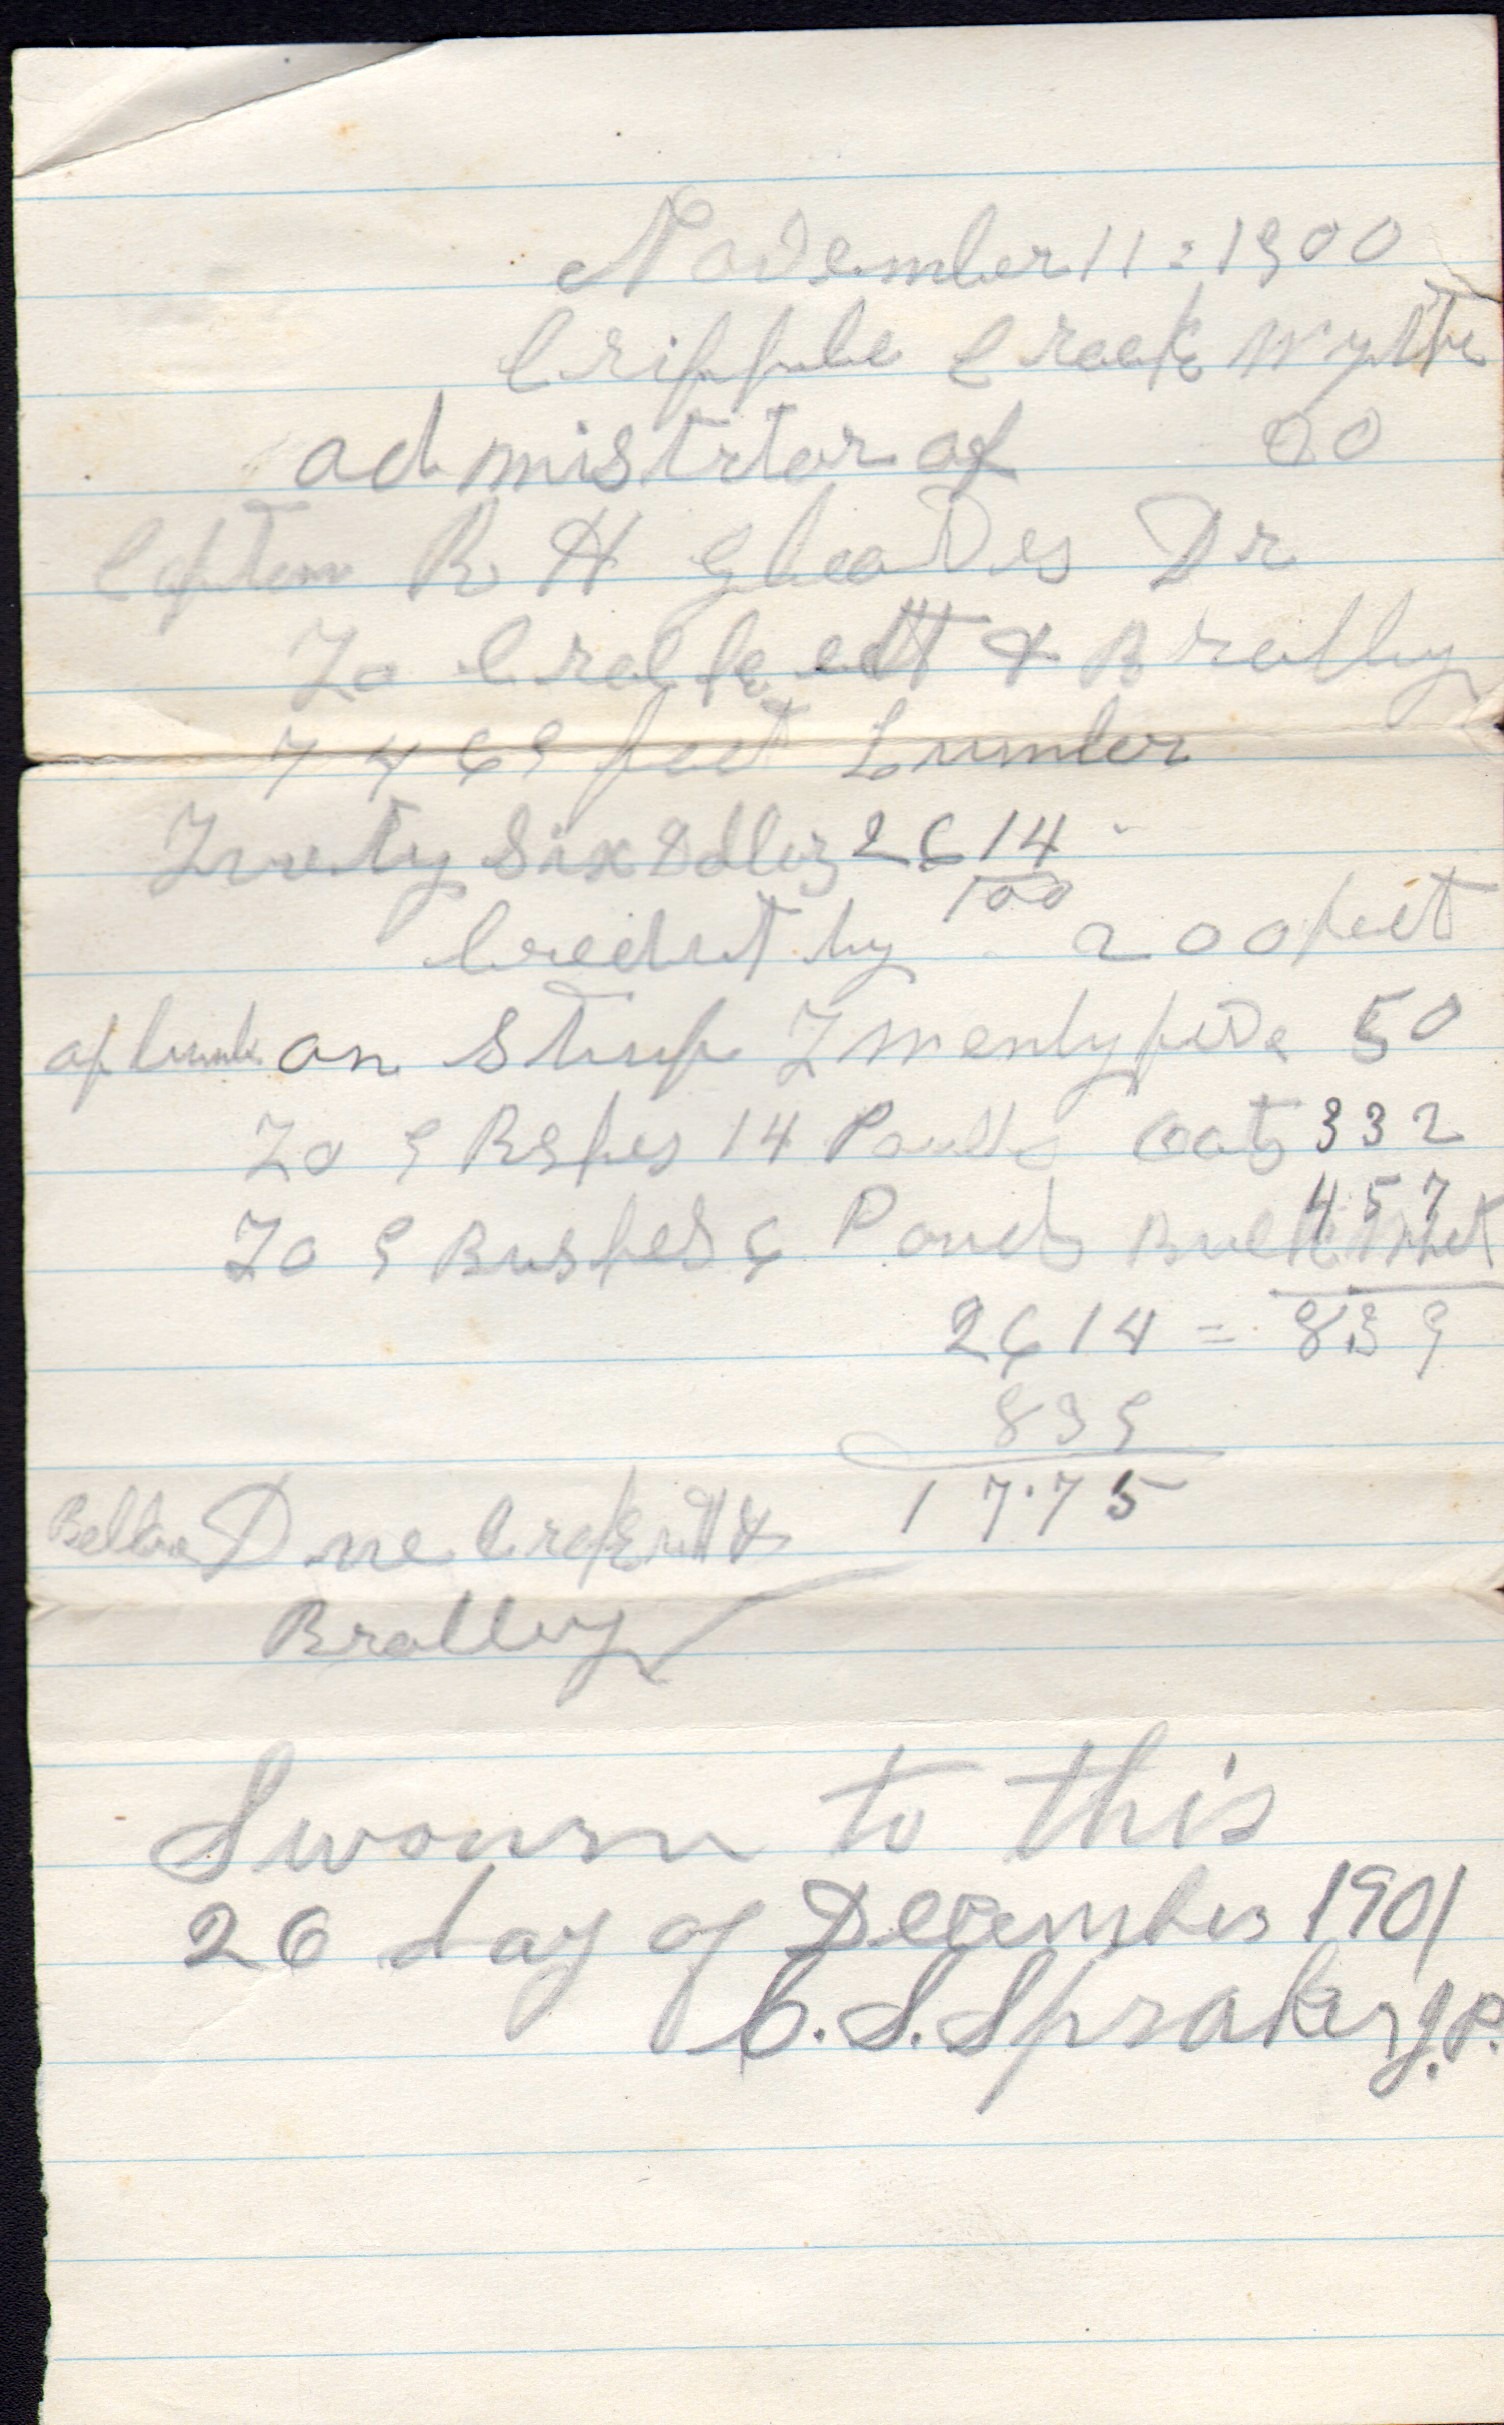 November 11 = 1900
Cripple Creek Wythe
admistrtor of Co
Captem R H Gleaves Dr
To Crockett & Bralley
7469 feet Lumber
Twety Six Dollers 26 14/100
Credit by 200 feet
of lumber on Stup Twentyfive 50
To 9 Bshes 14 Pounds Oats 332
To 9 Bushes 6 Pounds Buckwhet 457
2614 = 839
839
17.75
Bellance Due Crockett &
Bralley
Swourn to this
26 day of December 1901
C. S. Spraker J.P.